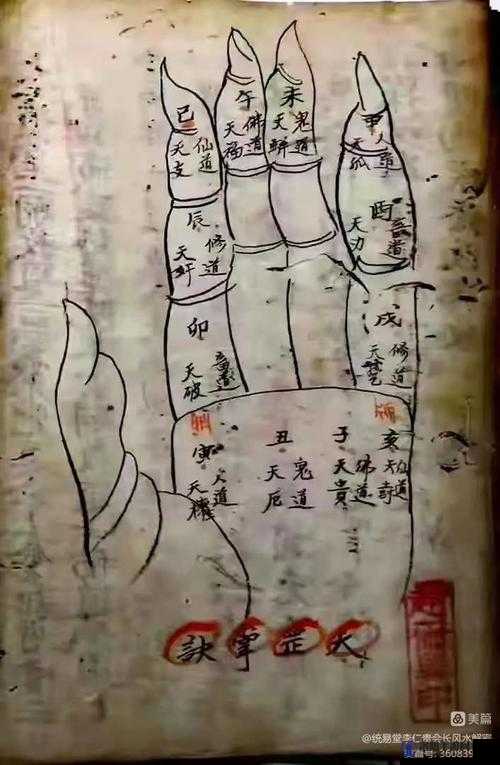 巳
仙道
天支
午
佛道
天福
未
鬼道
申
人道
天孤
辰
修道
天奸
酉
道
天刃
卯
道
天破
戌
修道
天藝
寅
人道
天權
丑
鬼道
天厄
子
佛道
天貴
亥
仙道
天壽
天罡掌訣
美篇
@统易堂李仁贵会长风水解
美篇号: 360839